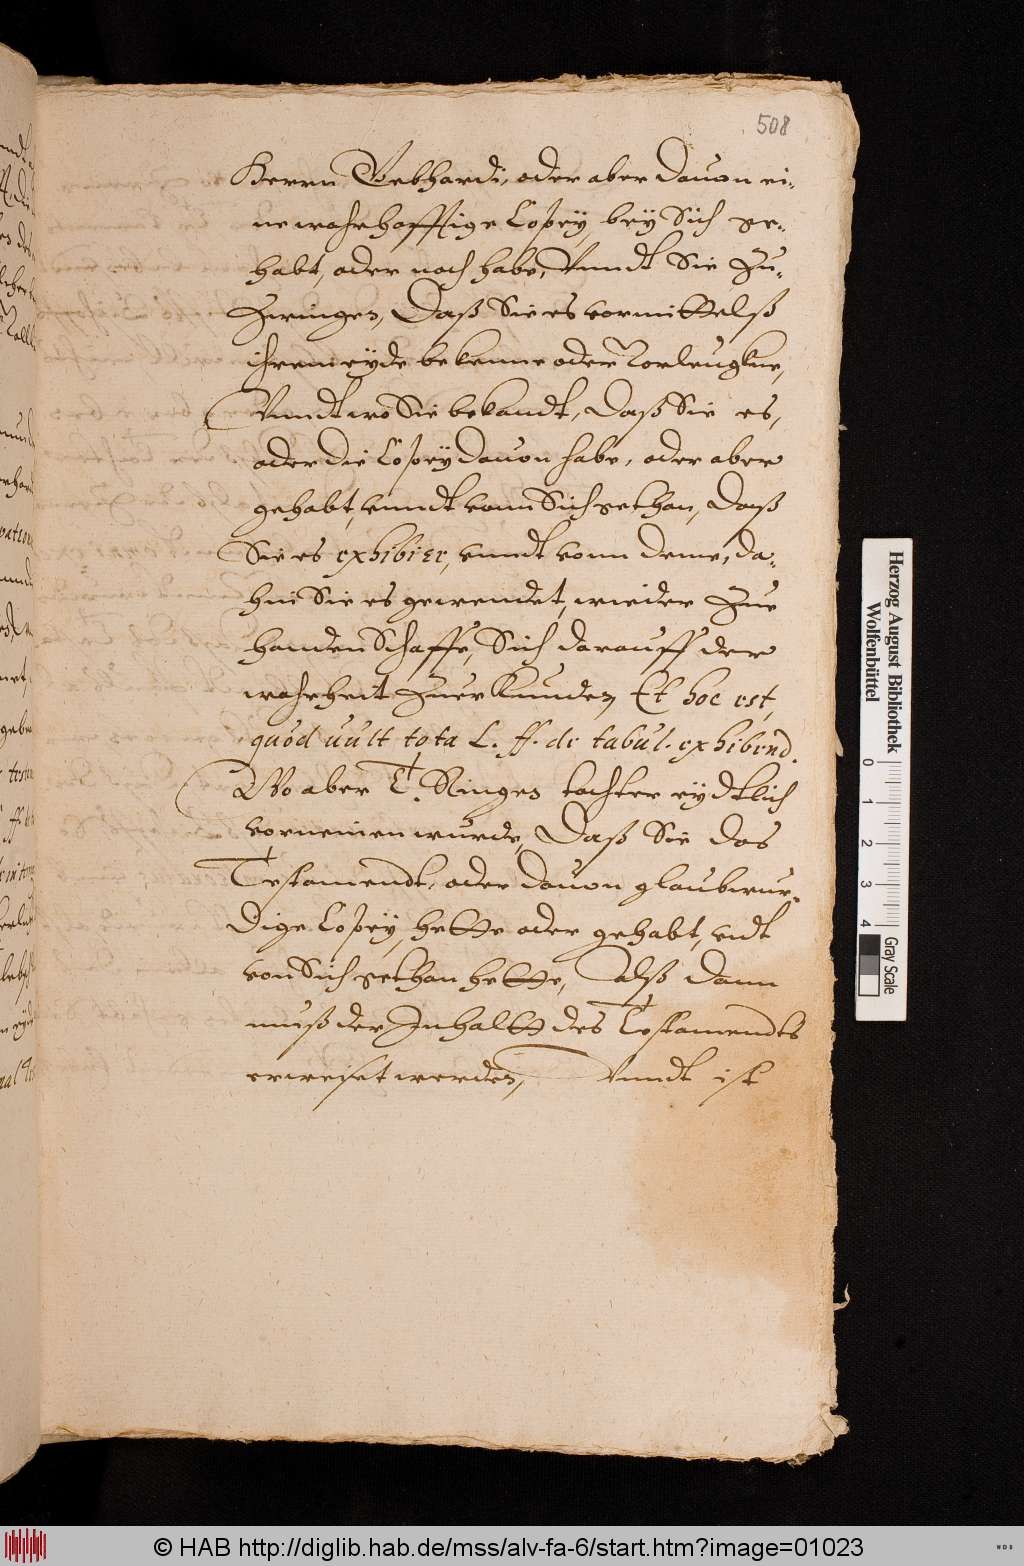 508
Herrn Gebhardi, oder aber dauon ei-
ne wahrhafftige Copeÿ, beÿ Sich ge-
habt, oder noch habe, Vnndt Sie Zu-
Zwingen, Daß Sie es vormittelß
ihrem eÿde bekenne oder Vorleugkne,
Vnndt wo Sie bekandt, Daß Sie es,
oder die Copeÿ dauon habe, oder aber
gehabt, vnndt vonn Sich gethan, Daß
Sie es exhibier, vnndt vonn deme, da-
hin Sie es gewendet, wieder Zue
handen Schaffe, Sich darauff der
wahrheit Zuerkunden, Et hoc est,
quod uult tota L. ff. de tabul. exhibend.
Wo aber T. Ringes tochter eydtlich
vorneinen wurde, Daß Sie das
Testamendt, oder dauon glaubwur-
dige Copeÿ, hette oder gehabt, vndt
von Sich gethan hette, alß dann
muß der Inhaltt des Testamendts
erweiset werden, Vnndt ist
Herzog August Bibliothek
Wolfenbüttel
0 1 2 3 4
Gray Scale
© HAB http://diglib.hab.de/mss/alv-fa-6/start.htm?image=01023